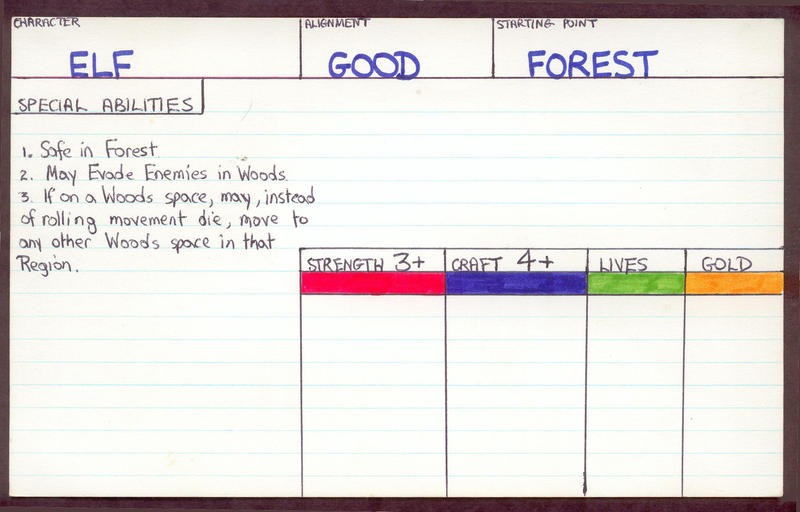 CHARACTER ALIGNMENT STARTING POINT
ELF GOOD FOREST
SPECIAL ABILITIES
1. Safe in Forest
2. May Evade Enemies in Woods.
3. If on a Woods space, may, instead
of rolling movement die, move to
any other Woods space in that
Region.
STRENGTH 3+ CRAFT 4+ LIVES GOLD